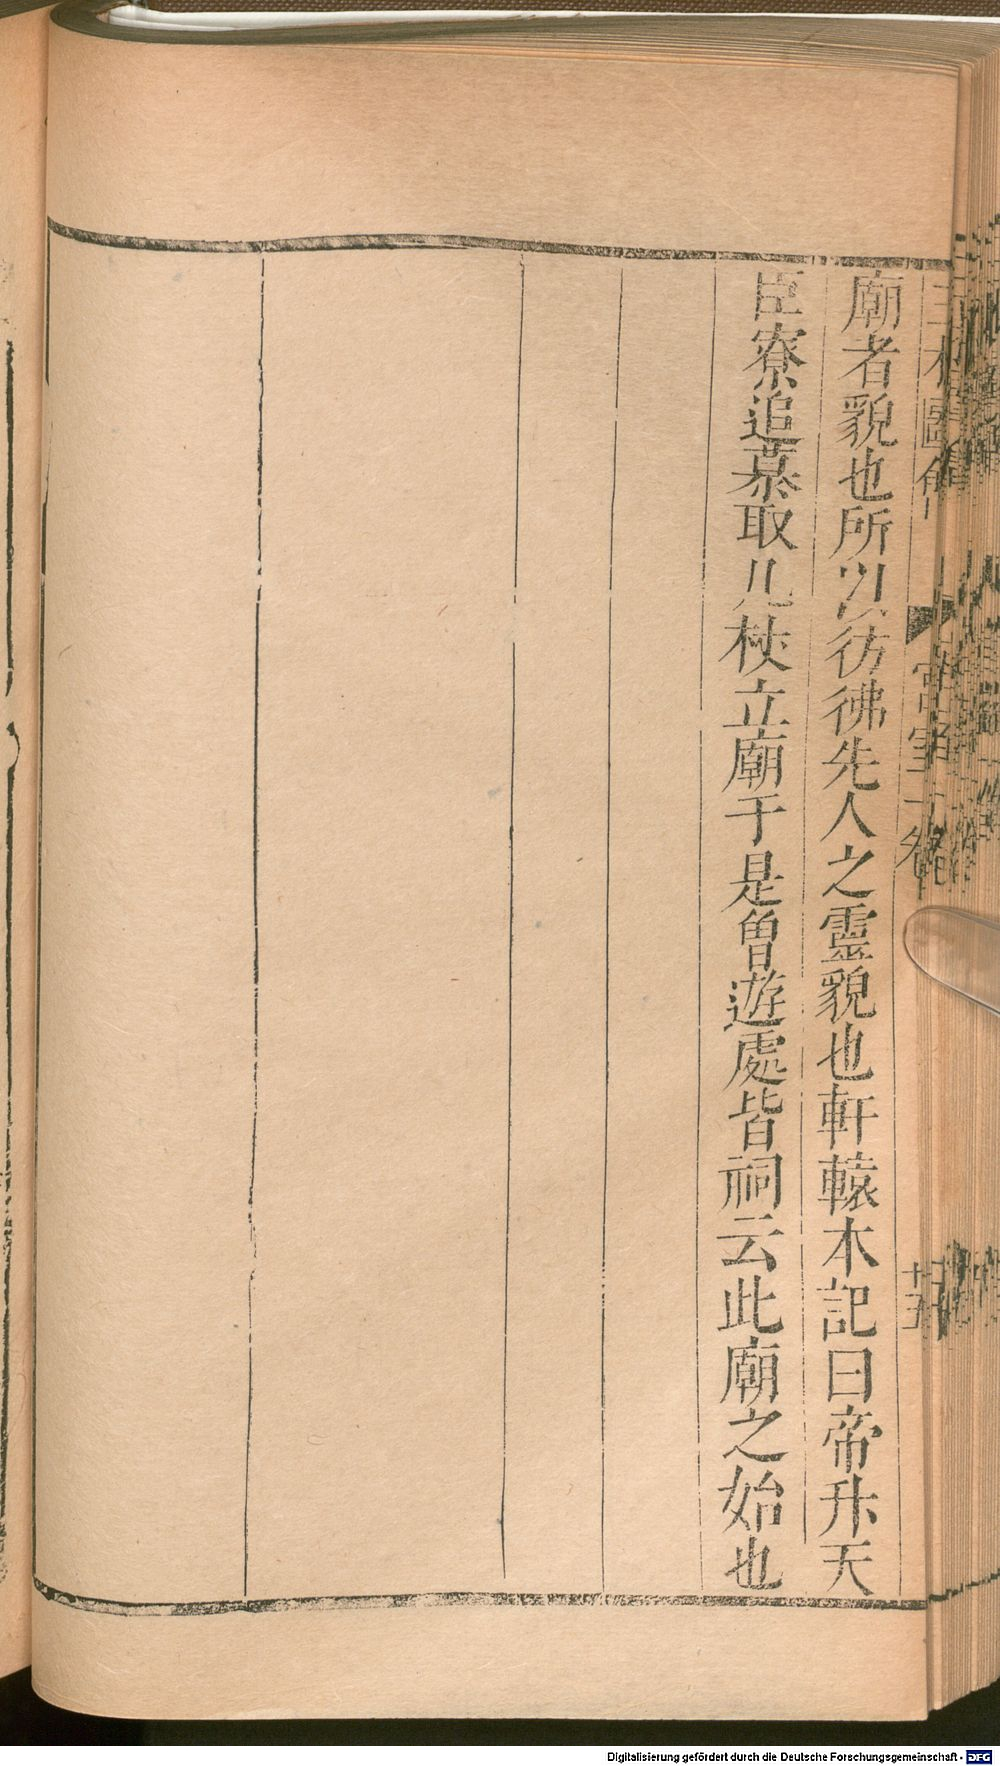 三才圖會
宮室一卷
十五
廟者貌也所以彷彿先人之靈貌也軒轅本記曰帝升天
臣寮追慕取几杖立廟于是曽遊處皆祠云此廟之始也
Digitalisierung gefördert durch die Deutsche Forschungsgemeinschaft - DFG